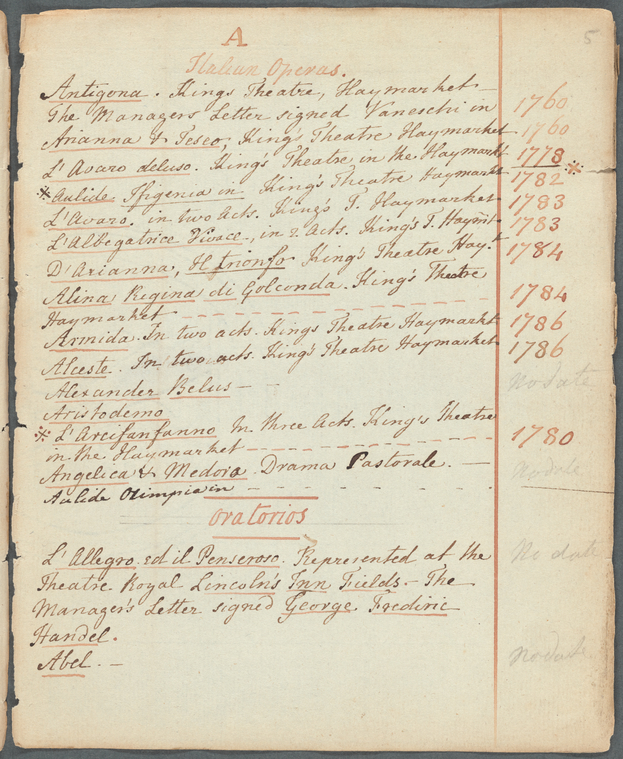 5
A
Italian Operas.
Antigona. Kings Theatre, Haymarket
The Managers Letter signed Vaneschi in 1760
Arianna & Teseo, King's Theatre Haymarket 1760
L'Avaro deluso. King's Theatre in the Haymarkt 1778
※ Aulide Ifigenia in King's Theatre Haymarket 1782 ※
L'Avaro. in two Acts. King's T. Haymarket 1783
L'Albegatrice Vivace, in 2. Acts. King's T. Haymt 1783
D'Arianna, Il Trionfo King's Theatre Hay.t 1784
Alina Regina di Golconda. King's Theatre
Haymarket 1784
Armida. In two acts. Kings Theatre Haymarket 1786
Alceste. In two acts. King's Theatre Haymarket 1786
Alexander Belus — No date
Aristodemo
※ L'Arcifanfanno In three Acts. King's Theatre
in the Haymarket 1780
Angelica & Medora. Drama Pastorale. — No date
Aulide Olimpia in
Oratorios
L'Allegro ed il Penseroso. Represented at the No date
Theatre Royal Lincoln's Inn Fields - The
Manager's Letter signed George Frederic
Handel.
Abel. — No date